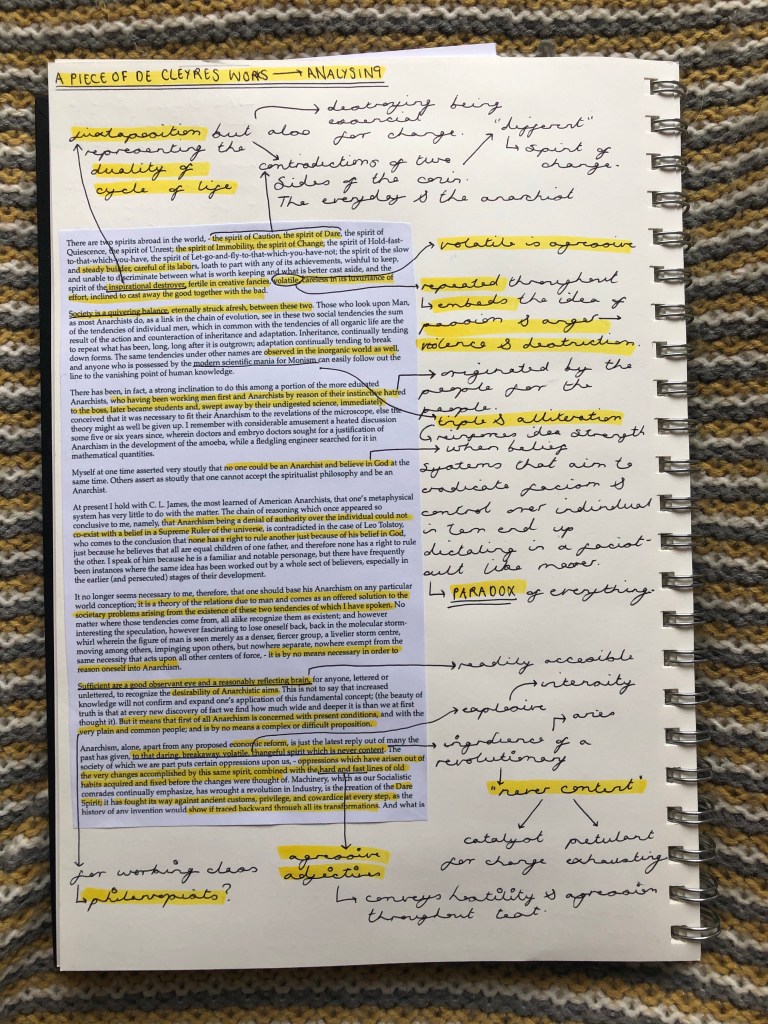 A PIECE OF DE CLEYRES WORKS → ANALYSING
destroying being
essencial
for change.
juxtaposition but also
representing the
duality of
cycle of life
contradictions of two
sides of the coin.
The everyday & the anarchist
"different"
↳ spirit of
change.
There are two spirits abroad in the world, - the spirit of Caution, the spirit of Dare, the spirit of
Quiescence, the spirit of Unrest; the spirit of Immobility, the spirit of Change; the spirit of Hold-fast-
to-that-which-you-have, the spirit of Let-go-and-fly-to-that-which-you-have-not; the spirit of the slow
and steady builder, careful of its labors, loath to part with any of its achievements, wishful to keep,
and unable to discriminate between what is worth keeping and what is better cast aside, and the
spirit of the inspirational destroyer, fertile in creative fancies, volatile, careless in its luxuriance of
effort, inclined to cast away the good together with the bad.
Society is a quivering balance, eternally struck afresh, between these two. Those who look upon Man,
as most Anarchists do, as a link in the chain of evolution, see in these two social tendencies the sum
of the tendencies of individual men, which in common with the tendencies of all organic life are the
result of the action and counteraction of inheritance and adaptation. Inheritance, continually tending
to repeat what has been, long, long after it is outgrown; adaptation continually tending to break
down forms. The same tendencies under other names are observed in the inorganic world as well,
and anyone who is possessed by the modern scientific mania for Monism can easily follow out the
line to the vanishing point of human knowledge.
There has been, in fact, a strong inclination to do this among a portion of the more educated
Anarchists, who having been working men first and Anarchists by reason of their instinctive hatred
to the boss, later became students and, swept away by their undigested science, immediately
conceived that it was necessary to fit their Anarchism to the revelations of the microscope, else the
theory might as well be given up. I remember with considerable amusement a heated discussion
some five or six years since, wherein doctors and embryo doctors sought for a justification of
Anarchism in the development of the amoeba, while a fledgling engineer searched for it in
mathematical quantities.
Myself at one time asserted very stoutly that no one could be an Anarchist and believe in God at the
same time. Others assert as stoutly that one cannot accept the spiritualist philosophy and be an
Anarchist.
At present I hold with C. L. James, the most learned of American Anarchists, that one's metaphysical
system has very little to do with the matter. The chain of reasoning which once appeared so
conclusive to me, namely, that Anarchism being a denial of authority over the individual could not
co-exist with a belief in a Supreme Ruler of the universe, is contradicted in the case of Leo Tolstoy,
who comes to the conclusion that none has a right to rule another just because of his belief in God,
just because he believes that all are equal children of one father, and therefore none has a right to rule
the other. I speak of him because he is a familiar and notable personage, but there have frequently
been instances where the same idea has been worked out by a whole sect of believers, especially in
the earlier (and persecuted) stages of their development.
It no longer seems necessary to me, therefore, that one should base his Anarchism on any particular
world conception; it is a theory of the relations due to man and comes as an offered solution to the
societary problems arising from the existence of these two tendencies of which I have spoken. No
matter where those tendencies come from, all alike recognize them as existent; and however
interesting the speculation, however fascinating to lose oneself back, back in the molecular storm-
whirl wherein the figure of man is seen merely as a denser, fiercer group, a livelier storm centre,
moving among others, impinging upon others, but nowhere separate, nowhere exempt from the
same necessity that acts upon all other centers of force, - it is by no means necessary in order to
reason oneself into Anarchism.
Sufficient are a good observant eye and a reasonably reflecting brain, for anyone, lettered or
unlettered, to recognize the desirability of Anarchistic aims. This is not to say that increased
knowledge will not confirm and expand one's application of this fundamental concept; (the beauty of
truth is that at every new discovery of fact we find how much wider and deeper it is than we at first
thought it). But it means that first of all Anarchism is concerned with present conditions, and with the
very plain and common people; and is by no means a complex or difficult proposition.
Anarchism, alone, apart from any proposed economic reform, is just the latest reply out of many the
past has given, to that daring, breakaway, volatile, changeful spirit which is never content. The
society of which we are part puts certain oppressions upon us, - oppressions which have arisen out of
the very changes accomplished by this same spirit, combined with the hard and fast lines of old
habits acquired and fixed before the changes were thought of. Machinery, which as our Socialistic
comrades continually emphasize, has wrought a revolution in Industry, is the creation of the Dare
Spirit; it has fought its way against ancient customs, privilege, and cowardice at every step, as the
history of any invention would show if traced backward through all its transformations. And what is
volatile is agressive
repeated throughout
↳ embeds the idea of
passion & anger →
violence & destruction.
originated by the
people for the
people.
triple & alliteration
↳ reinforces idea strength
when belief
systems that aim to
eradicate facism &
control over individual
in turn end up
dictating in a facist-
cult like manner.
↳ PARADOX of everything.
readily accesible
criteroity
explosive
↳ aries
ingredience of a
revolutionary
"never content"
catalyst
for change
petulant
exhausting
for working class
↳ philanropists?
agressive
adjectives
↳ conveys hostility & agression
throughout text.